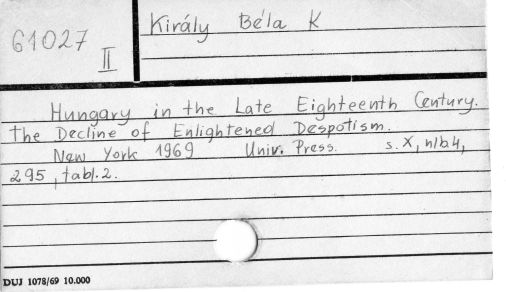 Király Béla K
61027
II
Hungary in the Late Eighteenth Century.
The Decline of Enlightened Despotism.
New York 1969 Univ. Press. s. X, nlb4,
295, tabl. 2.
DUJ 1078/69 10.000